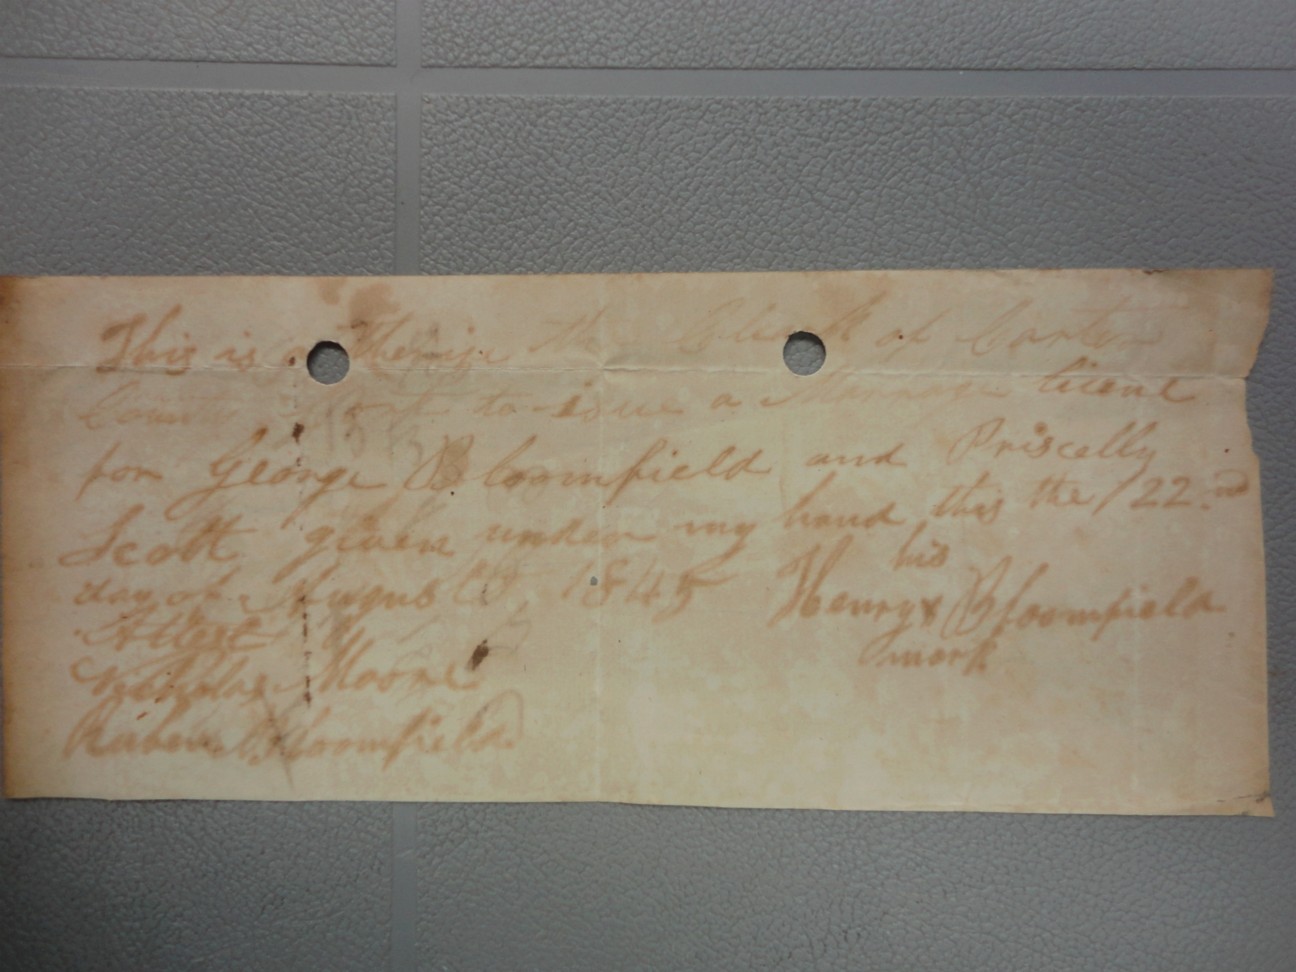 This is authorize the Clerk of Carter
County Cort to issue a Marrage licene
for George Bloomfield and Priscelly
Scott given under my hand this the 22nd
day of August 1845 Henry x Bloomfield
his
mark
Attest
Nicholas Moore
Ruben Bloomfield